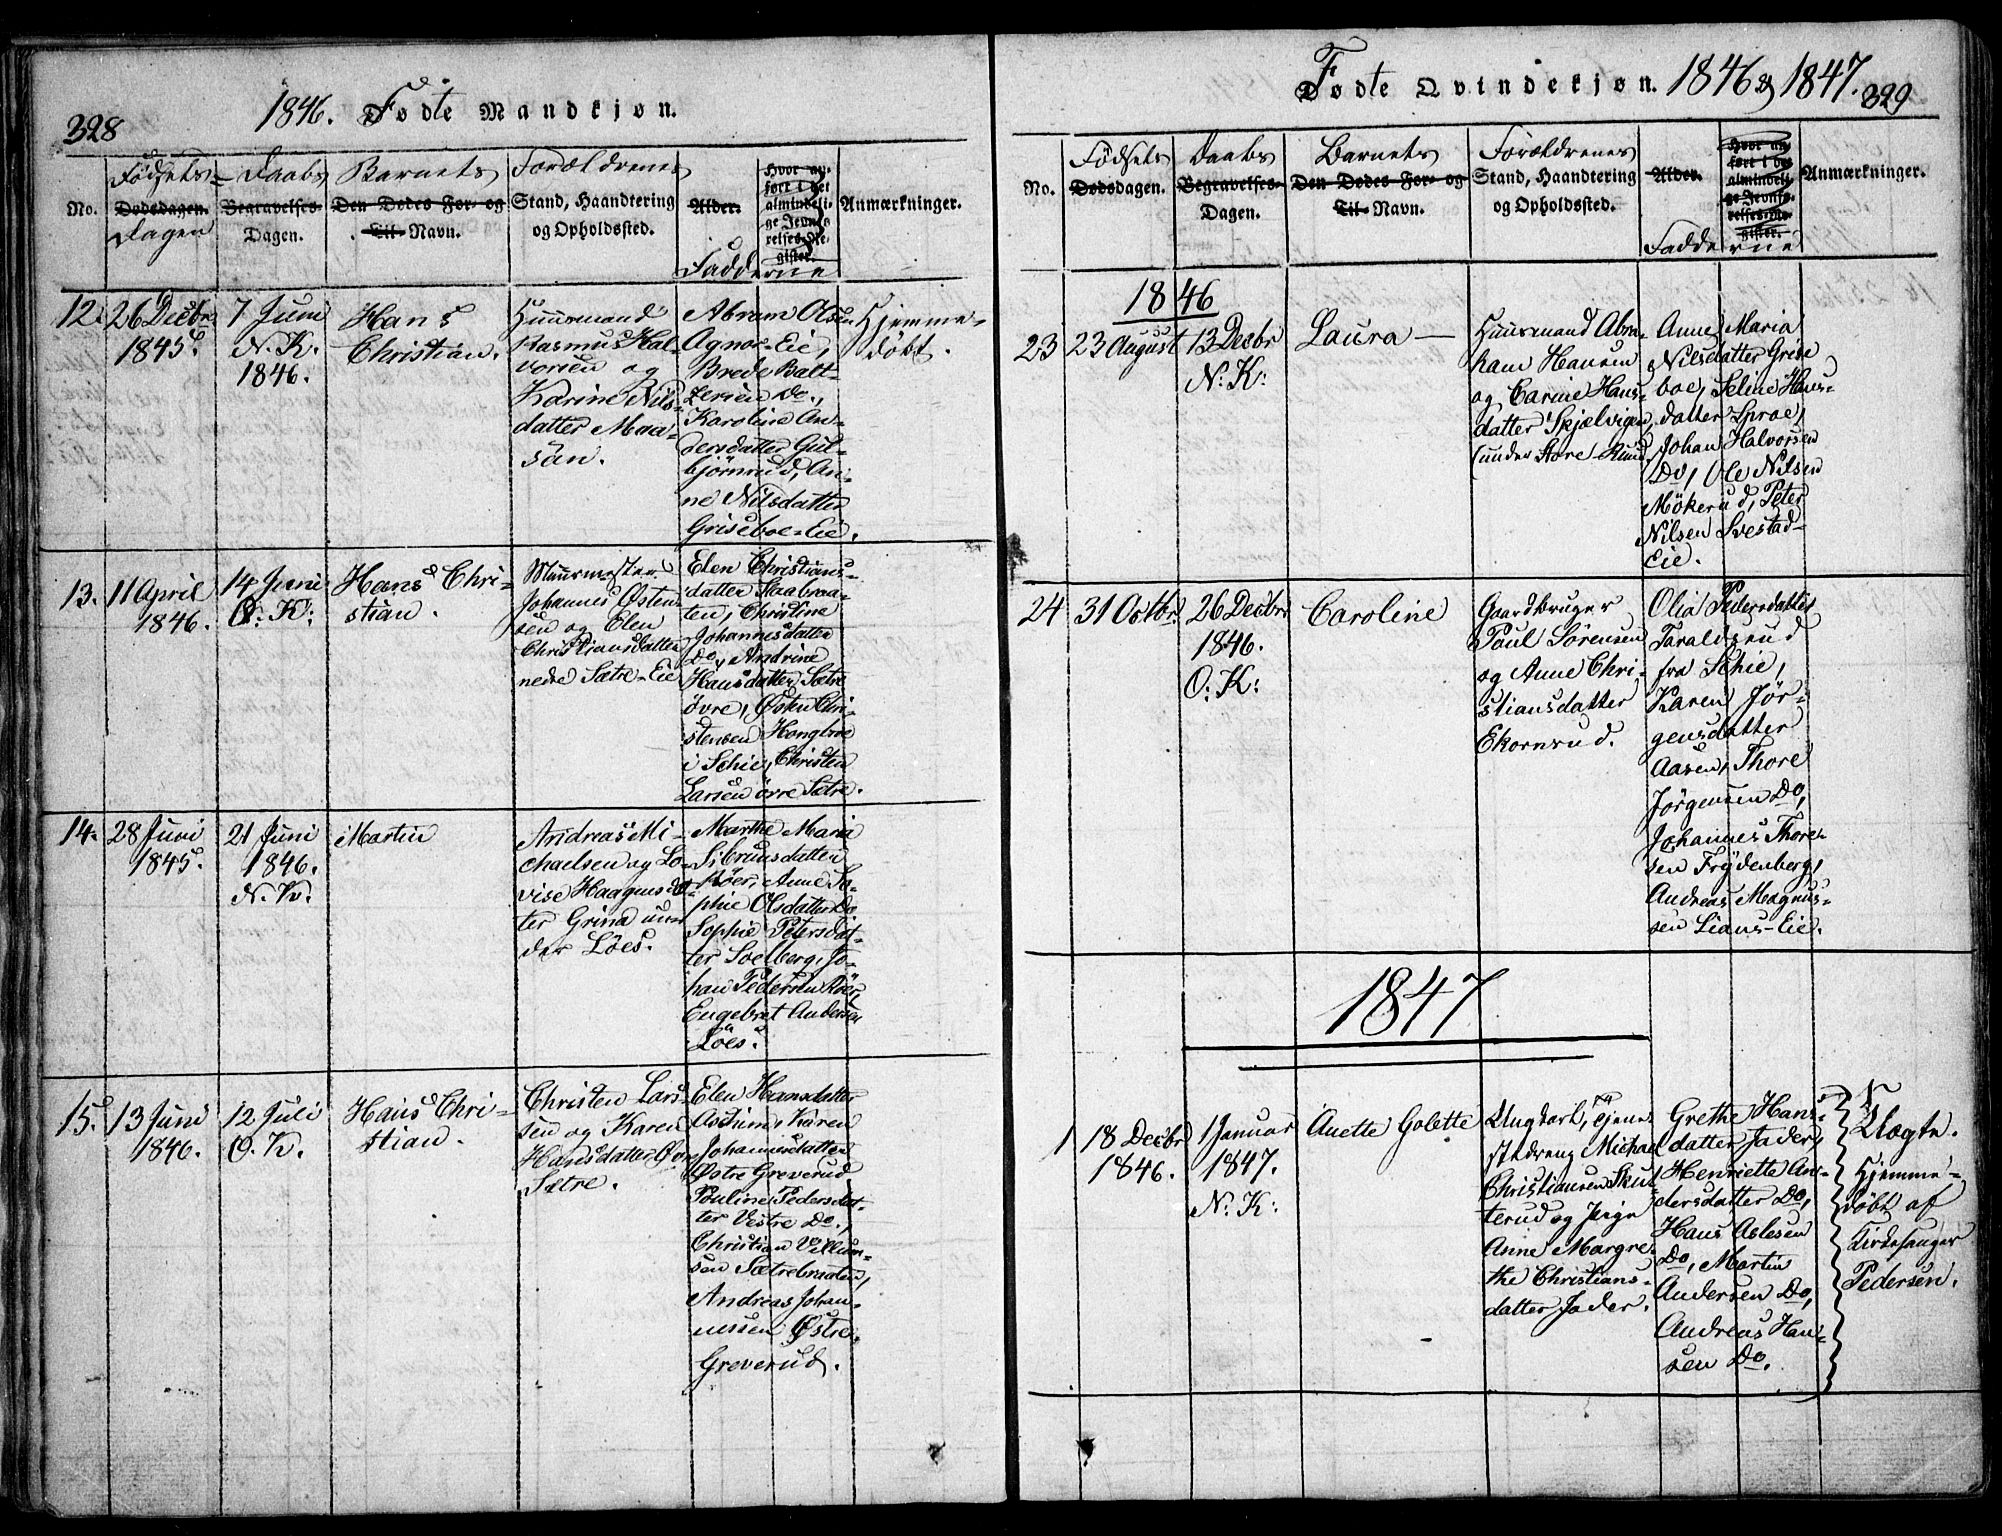 328
1846. Fødte Mandkjøn.
No.
Fødsels-
Dødsdagen.
Dagen
Daabs
Begravelses-
Dagen.
Barnets
Den Dødes For- og
Til- Navn.
Forældrenes
Stand, Haandtering
og Opholdssted.
Alder.
Hvor an-
ført i det
almindeli-
ge Jevnfø-
relses-Re-
gister.
Fadderne
Anmærkninger.
12.
26 Decbr
1845.
7 Juni
N. K.
1846.
Hans
Christian.
Huusmand
Rasmus Hal-
vorsen og
Karine Nils-
datter Maa-
sân.
Abram Olsen
Agnor-Eie,
Brede Balt-
zersen Do,
Karoline An-
dersdatter Gul-
bjørnrud, An-
ne Nilsdatter
Griseboe-Eie.
Hjemme-
døbt.
13.
11 April
1846.
14 Juni
O. K:
Hans Chri-
stian.
Muurmester
Johannes Østen-
sen og Elen
Christiansdatter
nedre Sætre-Eie
Elen Christians-
datter Staabraa-
ten, Christine
Johannesdatter
Do, Andrine
Hansdatter Sætre
øvre, Østen Chri-
stensen Hongbroe
i Schie, Christen
Larsen øvre Sætre.
14.
28 Juni
1845.
21 Juni
1846.
N. K.
Martin
Andreas Mi-
chaelsen og Lo-
vise Haagensdat-
ter Grina un-
der Löes.
Marthe Maria
Sibrunsdatter
Röer, Anne So-
phie Olsdatter Do
Sophie Petersdat-
ter Soelberg, Jo-
han Pedersen Röer,
Engebret Andersen
Löes.
15.
13 Juni
1846.
12 Juli
O. K.
Hans Chri-
stian.
Christen Lars-
sen og Karen
Hansdatter
Sætre.
Elen Hansdatter
Aschim, Karen
Johannesdatter
Østre Greverud,
Pouline Pedersdat-
ter Vestre Do,
Christian Villum-
sen Sætrebraaten,
Andreas Johan-
nessen Østre
Greverud.
Fødte Qvindekjøn. 1846 & 1847.
329
No.
Fødsels
Dødsdagen.
Daabs
Begravelses-
Dagen.
Barnets
Den Dødes For- og
Til- Navn.
Forældrenes
Stand, Haandtering
og Opholdssted.
Alder.
Hvor an-
ført i det
almindeli-
ge Jevnfø-
relses-Re-
gister.
Fadderne
Anmærkninger.
1846
23
23 August
13 Decbr
N: K:
Laura
Huusmand Abra-
ham Hansen
og Carine Hans-
datter Skjælvigen,
(under Store Rud
Anne Maria
Nilsdatter Grise
boe, Seline Hans-
datter Sproe,
Johan Halvorsen
Do, Ole Nilsen
Mökerud, Peter
Nilsen Svestad-
Eie.
24
31 Octbr
26 Decbr
1846.
O: K:
Caroline
Gaardbruger
Paul Sörensen
og Anne Chri-
stiansdatter
Ekornrud.
Olia Pedersdatter
Taraldsrud
fra Schie,
Karen Jör-
gensdatter
Aasen, Thore
Jörgensen Do,
Johannes Thore-
sen Frydenberg,
Andreas Magnus-
sen Lians-Eie.
1847
1
18 Decbr
1846.
1 Januar
1847.
N: K:
Anette Golette
Ungkarl, Tjene-
stedreng Michael
Christiansen Sku-
terud og Pige
Anne Margre-
the Christians-
datter Jader.
Grethe Hans-
datter Jader,
Henriette An-
dersdatter Do,
Hans Aslesen
Do, Martin
Andersen Do,
Andreas Han-
sen Do.
Uægte.
Hjemme-
døbt af
Kirkesanger
Pedersen.